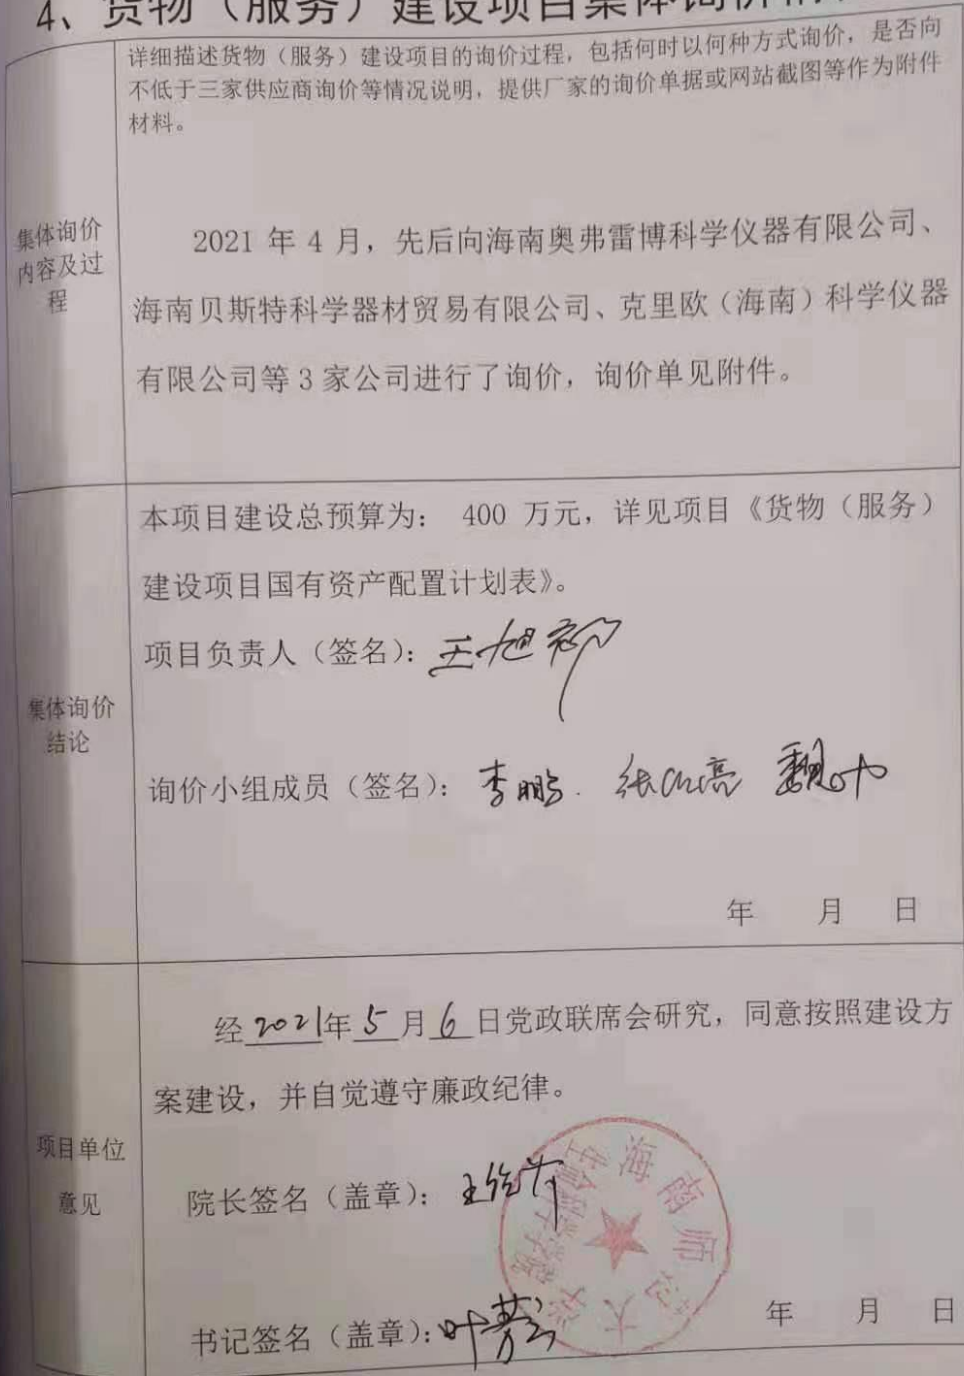 4、货物（服务）建设项目集体询价情
详细描述货物（服务）建设项目的询价过程，包括何时以何种方式询价，是否向
不低于三家供应商询价等情况说明，提供厂家的询价单据或网站截图等作为附件
材料。
集体询价
内容及过
程
2021 年 4 月，先后向海南奥弗雷博科学仪器有限公司、
海南贝斯特科学器材贸易有限公司、克里欧（海南）科学仪器
有限公司等 3 家公司进行了询价，询价单见附件。
集体询价
结论
本项目建设总预算为： 400 万元，详见项目《货物（服务）
建设项目国有资产配置计划表》。
项目负责人（签名）：王旭
询价小组成员（签名）： 李鹏 张 亮 魏
年 月 日
项目单位
意见
经2021年5月6日党政联席会研究，同意按照建设方
案建设，并自觉遵守廉政纪律。
院长签名（盖章）：王
书记签名（盖章）：叶芳云
年 月 日
海南师范大学
生命科学学院